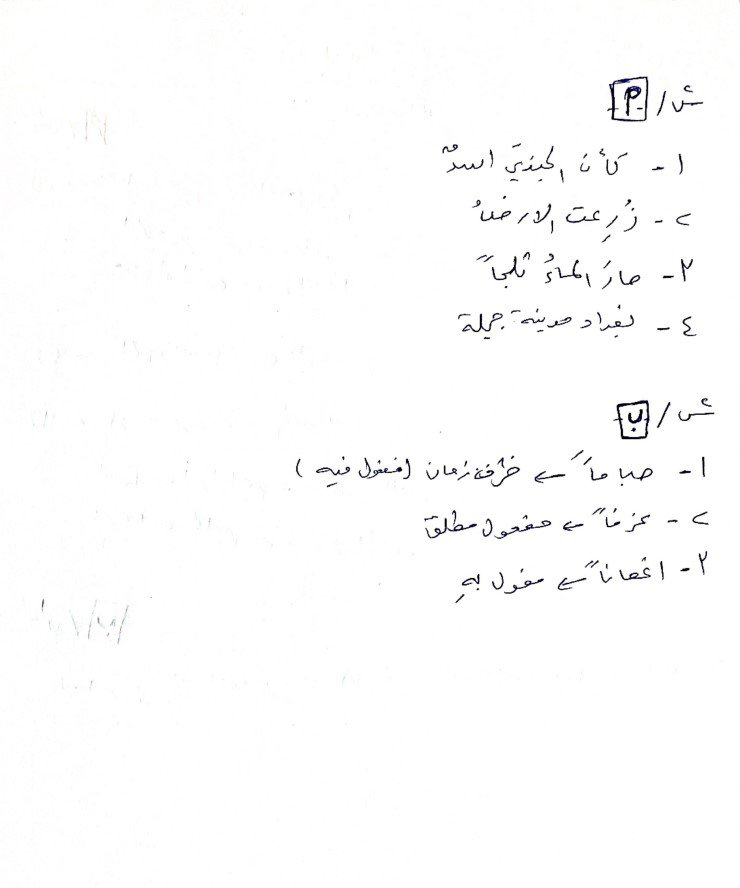 ش / أ
١- كأن الجنديَّ اسدٌ
٢- زُرِعت الارضُ
٣- صارَ الماءُ ثلجاً
٤- بغداد مدينة جميلة
ش / ب
١- صباحاً ← ظرف زمان (مفعول فيه)
٢- عزفاً ← مفعول مطلق
٣- اغصاناً ← مفول بهِ